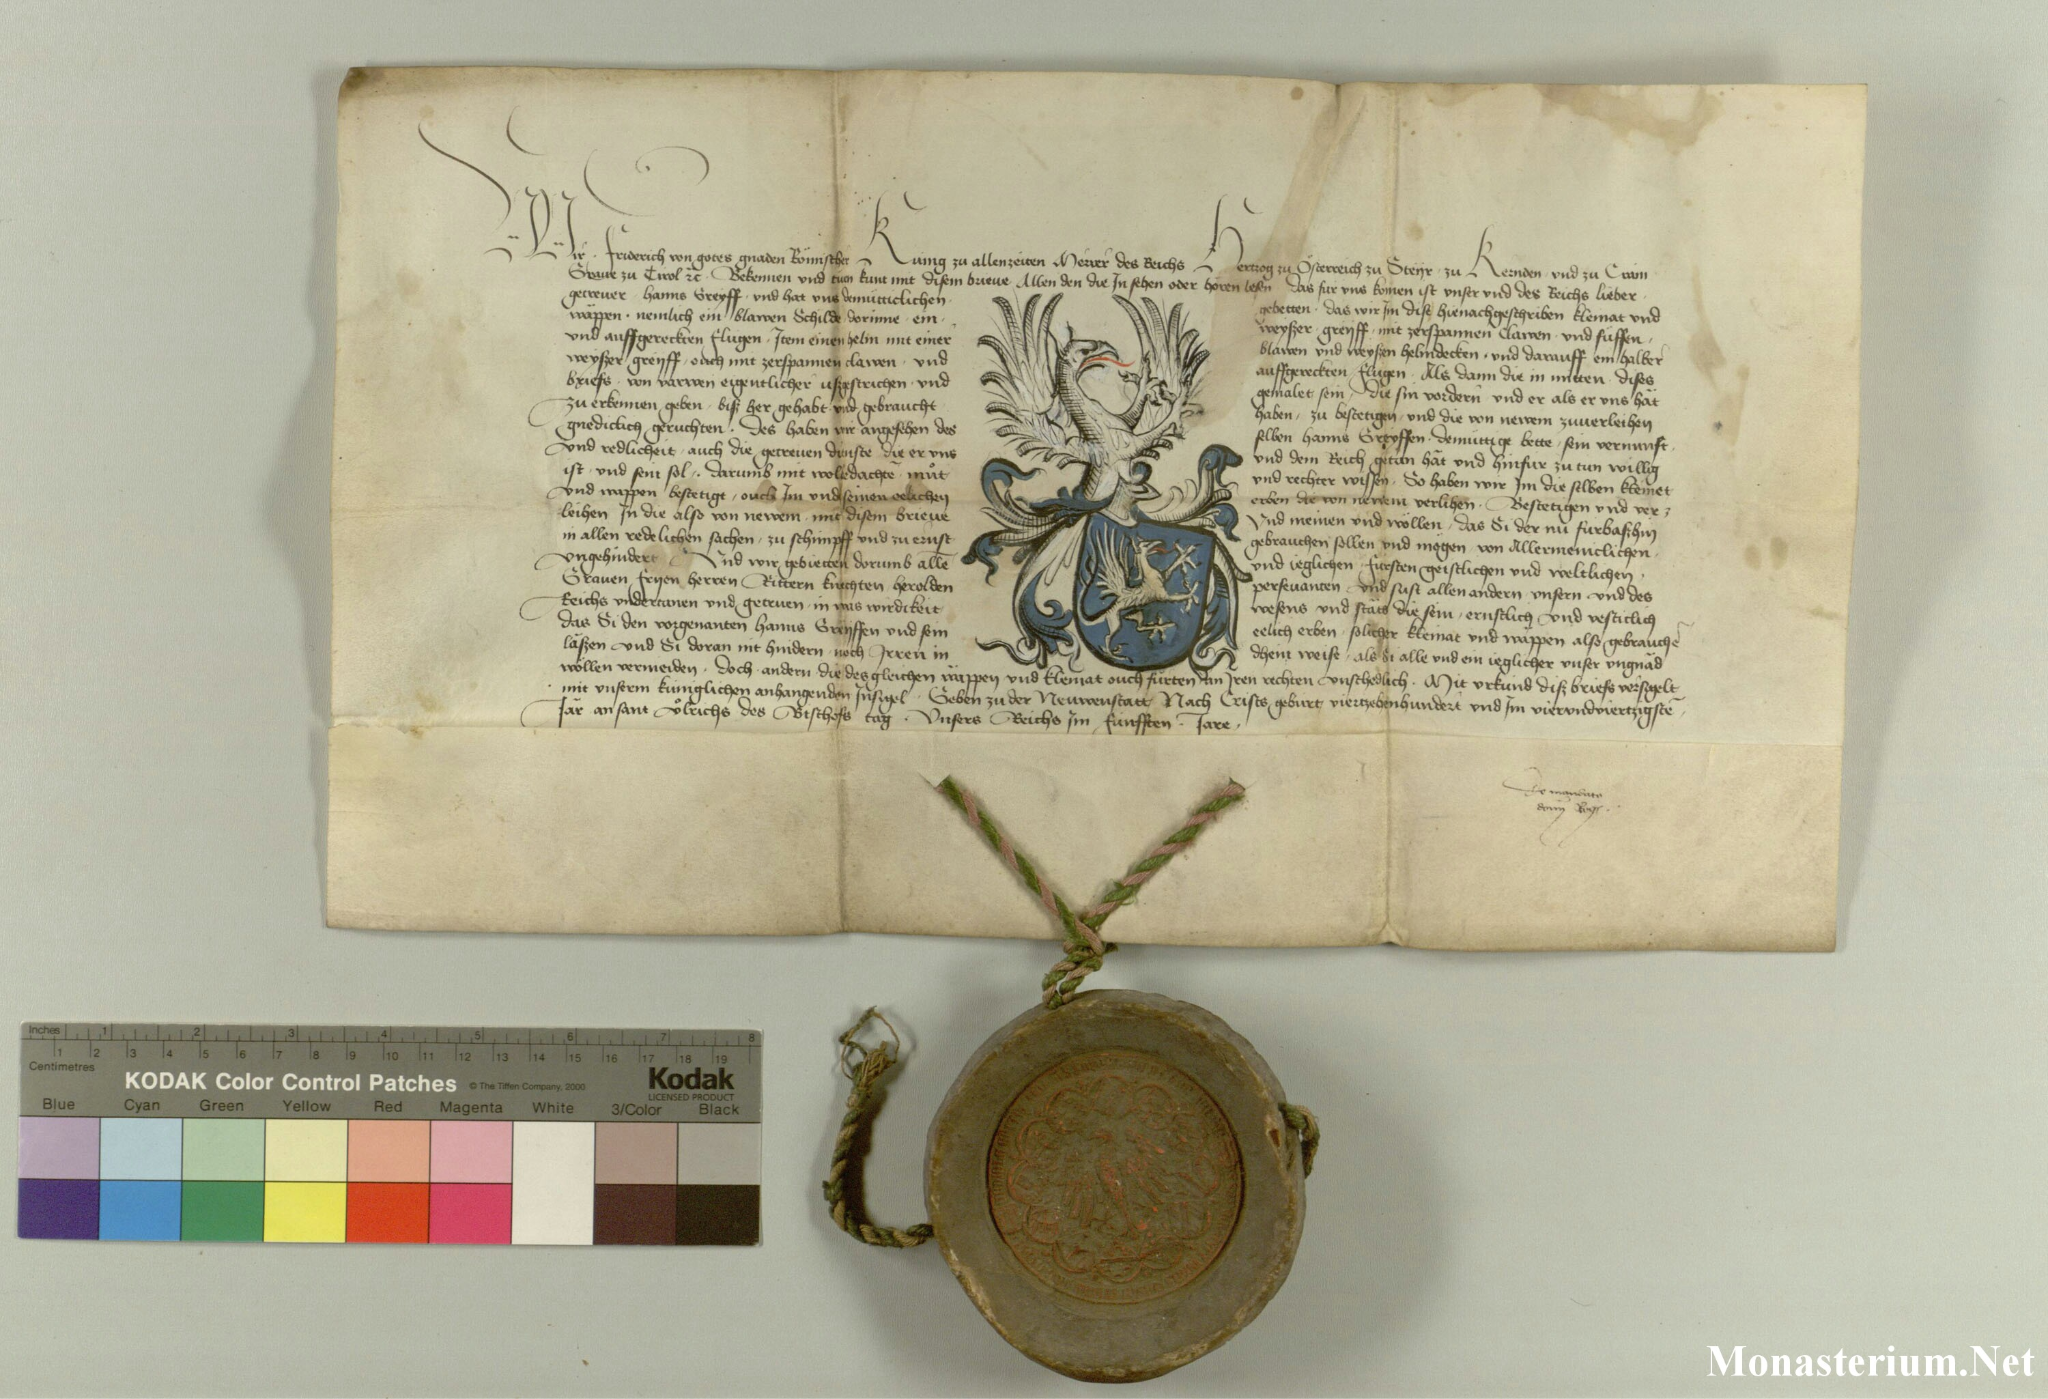 Wir Friderich von gotes gnaden Römischer Kunig zu allenzeiten Merrer des Reichs Hertzog zu Österreich zu Steyr zu Kernden und zu Crain
Grave zu Tirol ⁊c. Bekennen und tun kunt mit disem brieve Allen den die In sehen oder hören lesen das fur uns komen ist unser und des Reichs lieber
getrever hanns Greyff und hat uns demütticlichen gebetten das wir Im dise hienachgeschriben kleinat und
wappen nemlich ein blawen Schilde dorinne ein weyszer greyff mit zerspannen clawen und füssen
und auffgereckten flugen Item einen helm mit einer blawen und weyszen helmdecken und darauff ein halber
weyszer greyff ouch mit zerspannen clawen und auffgereckten flugen Als dann die in mitten dises
briefs von varwen eigentlicher uszgestrichen und gemalet sein die sin vordern und er als er uns hat
zu erkennen geben bisz her gehabt und gebraucht haben zu bestetigen und die von newem zuverleihen
gnediclich geruchten des haben wir angesehen des selben hanns Greyffen demüttige bette sein vernunfft
und redlicheit auch die getreuen dinste die er uns und dem Reich getan hat und hinfur zu tun willig
ist und sein sol darumb mit wolbedachte mut und rechter wissen So haben wir Im die selben kleinet
und wappen bestetigt ouch Im und seinen eelichen erben die von newem verlihen Bestetigen und ver
leihen In die also von newem mit disem brieve Und meinen und wöllen das Si der nu furbaszhin
in allen redelichen sachen zu schimpff und zu ernst gebrauchen sollen und mögen von Allermeniclichen
ungehindert Und wir gebietten dorumb alle und ieglichen fürsten geistlichen und weltlichen
Graven fryen herren Rittern knechten herolden persevanten und sust allen andern unsern und des
Reichs undertanen und getruen in was wirdikeit wesens und stats die sein ernstlich und vesticlich
das Si den vorgenanten hanns Greyffen und sein eelich erben solicher kleinat und wappen also gebrauche
laszen und Si doran nit hindern noch Irren in dhein weise als Si alle und ein ieglicher unser ungnad
wöllen vermeiden doch andern die desgleichen wappen und kleinat ouch furten an Iren rechten unschedlich Mit urkund disz briefs versigelt
mit unserm kuniglichen anhangenden Insigel Geben zu der Neuwenstatt Nach Crists geburt viertzehenhundert und Im vierundviertzigste
Jar an sant Ulrichs des Bischofs tag Unsers Reichs Im funfften Jare
De mandato
domini Regis
Inches 1 2 3 4 5 6 7 8
1 2 3 4 5 6 7 8 9 10 11 12 13 14 15 16 17 18 19
Centimetres
KODAK Color Control Patches © The Tiffen Company, 2000 Kodak
LICENSED PRODUCT
Blue Cyan Green Yellow Red Magenta White 3/Color Black
Monasterium.Net